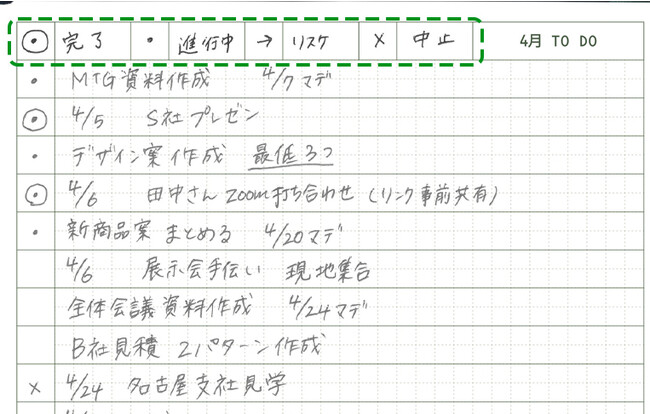 ⦿ 完了 • 進行中 → リスケ × 中止 4月 TO DO
• MTG資料作成 4/7マデ
⦿ 4/5 S社プレゼン
• デザイン案作成 最低3つ
⦿ 4/6 田中さんzoom打ち合わせ（リンク事前共有）
• 新商品案まとめる 4/20マデ
4/6 展示会手伝い 現地集合
全体会議資料作成 4/24マデ
B社見積 2パターン作成
× 4/24 名古屋支社見学